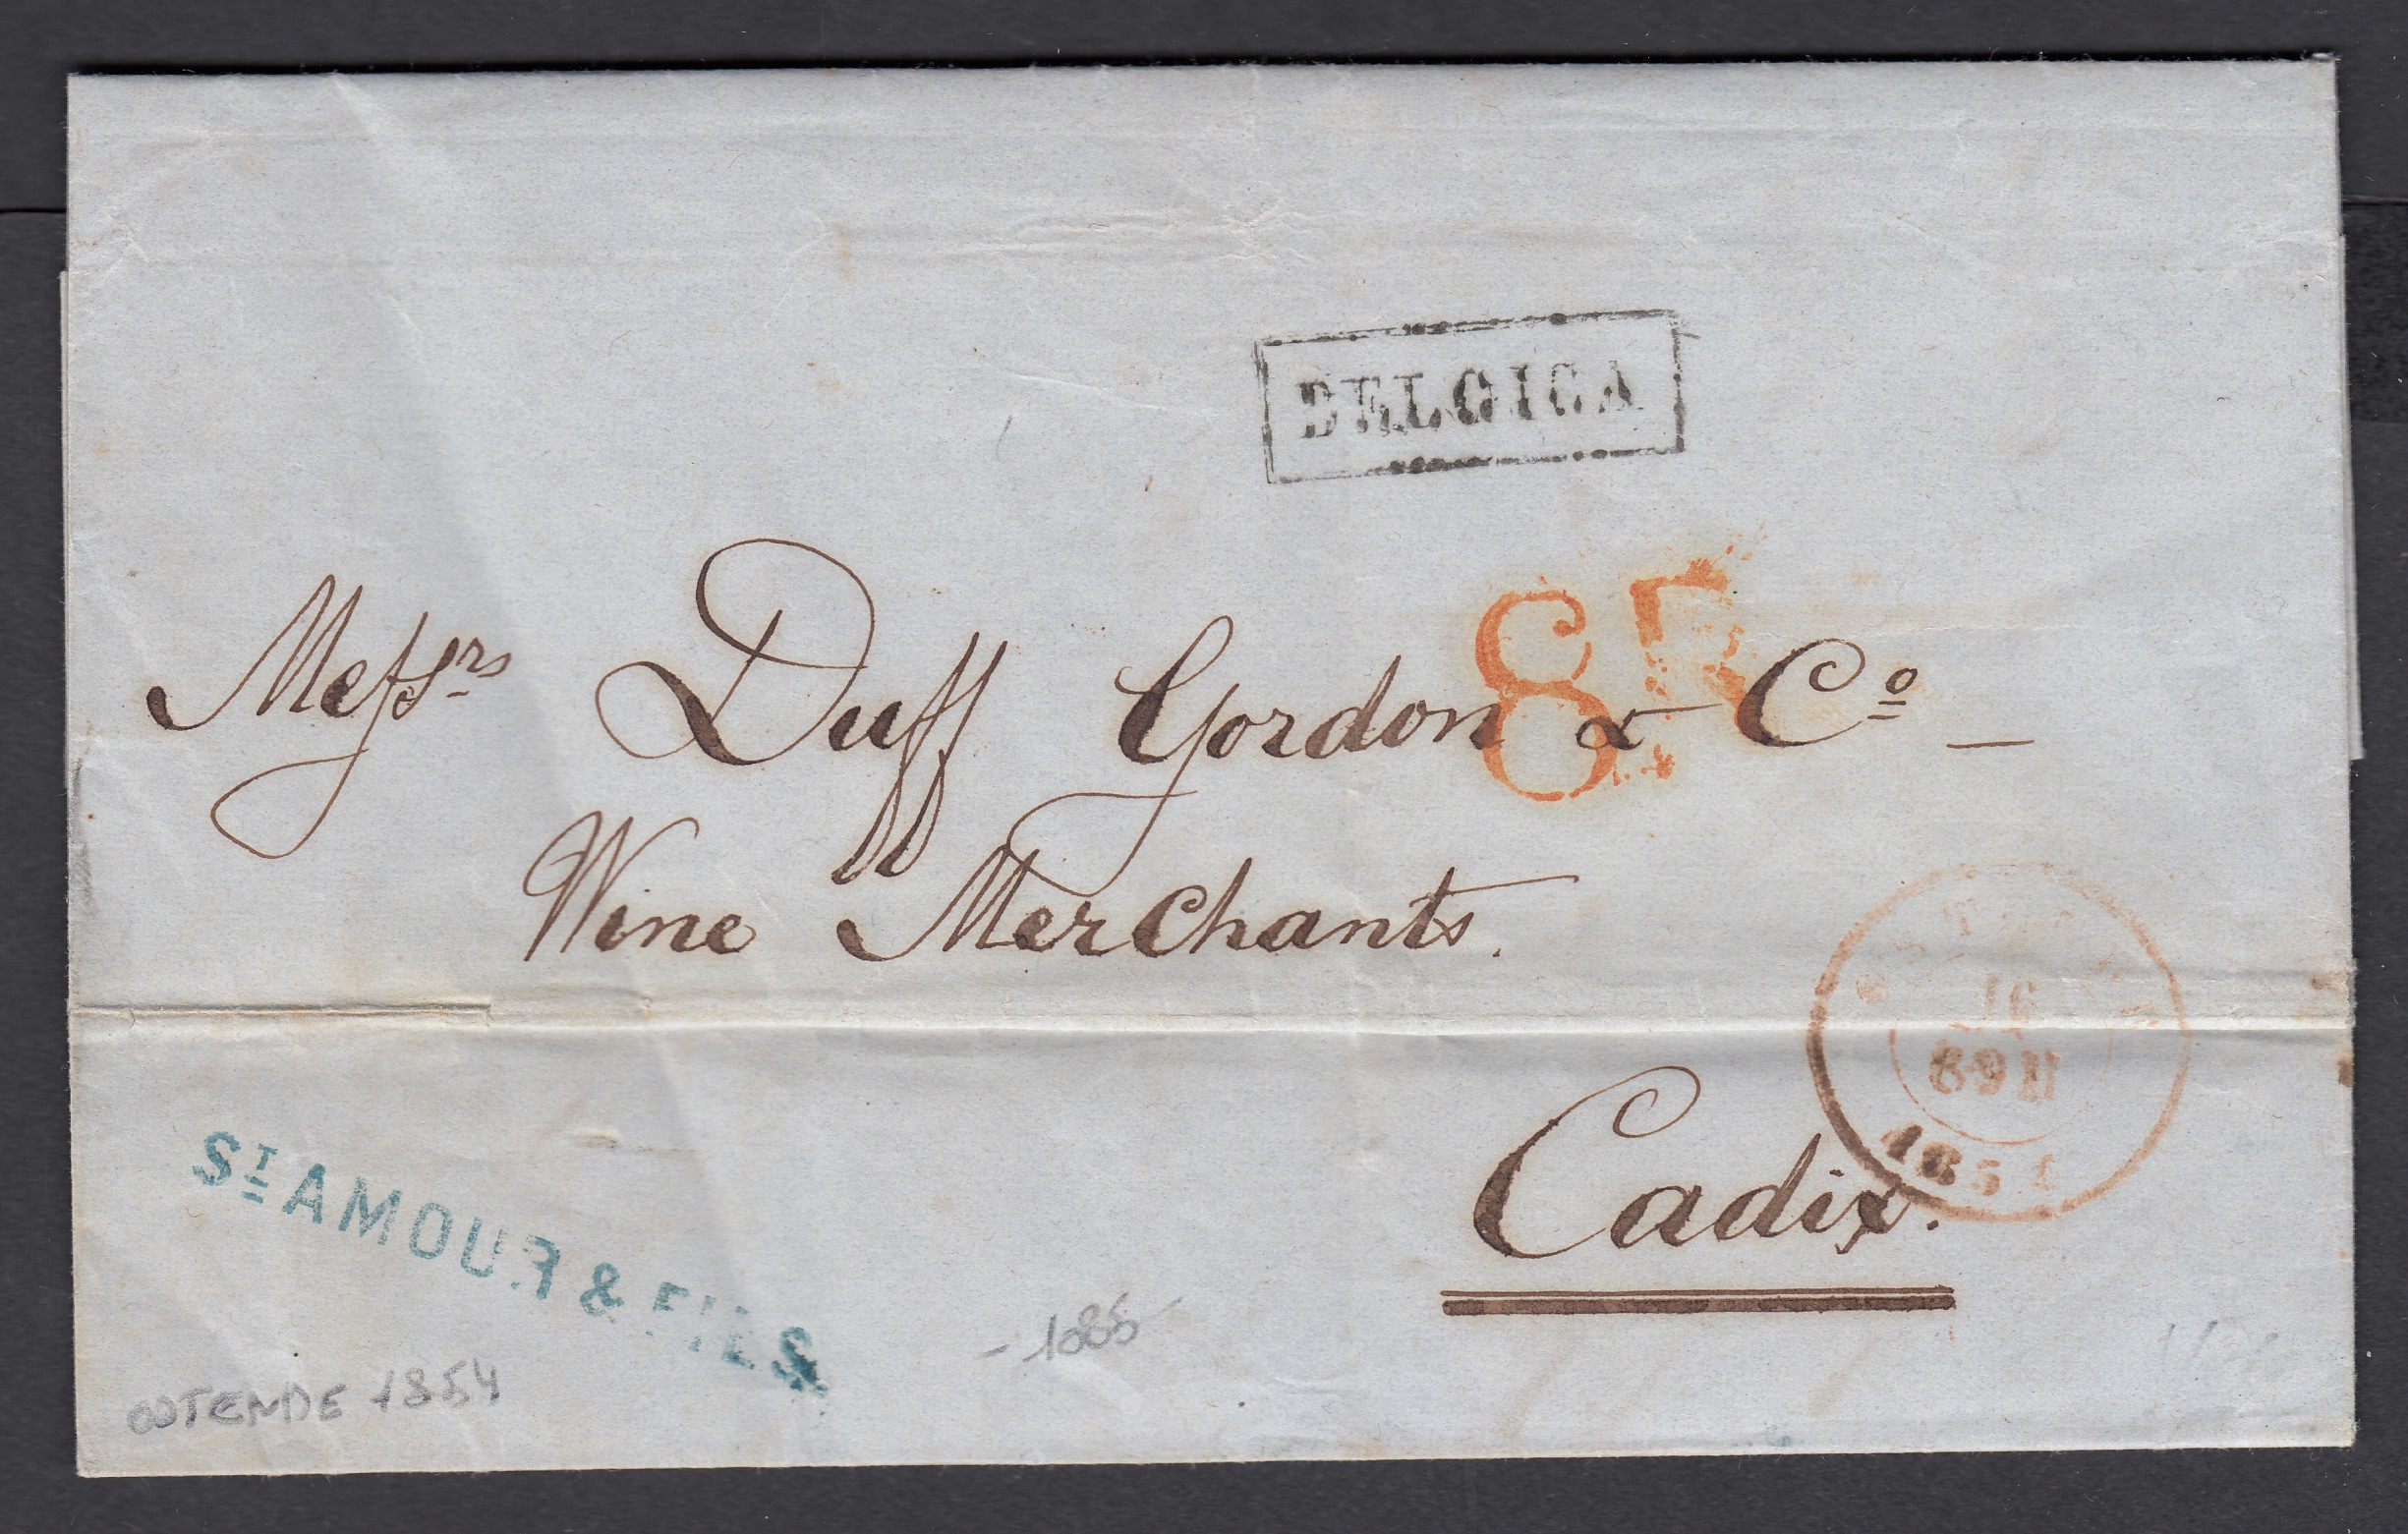 BELGICA
8R
Messrs Duff Gordon & Co
Wine Merchants.
Cadix.
16
89H
1854
ST AMOUR & FILS
OSTENDE 1854
- 1085 -